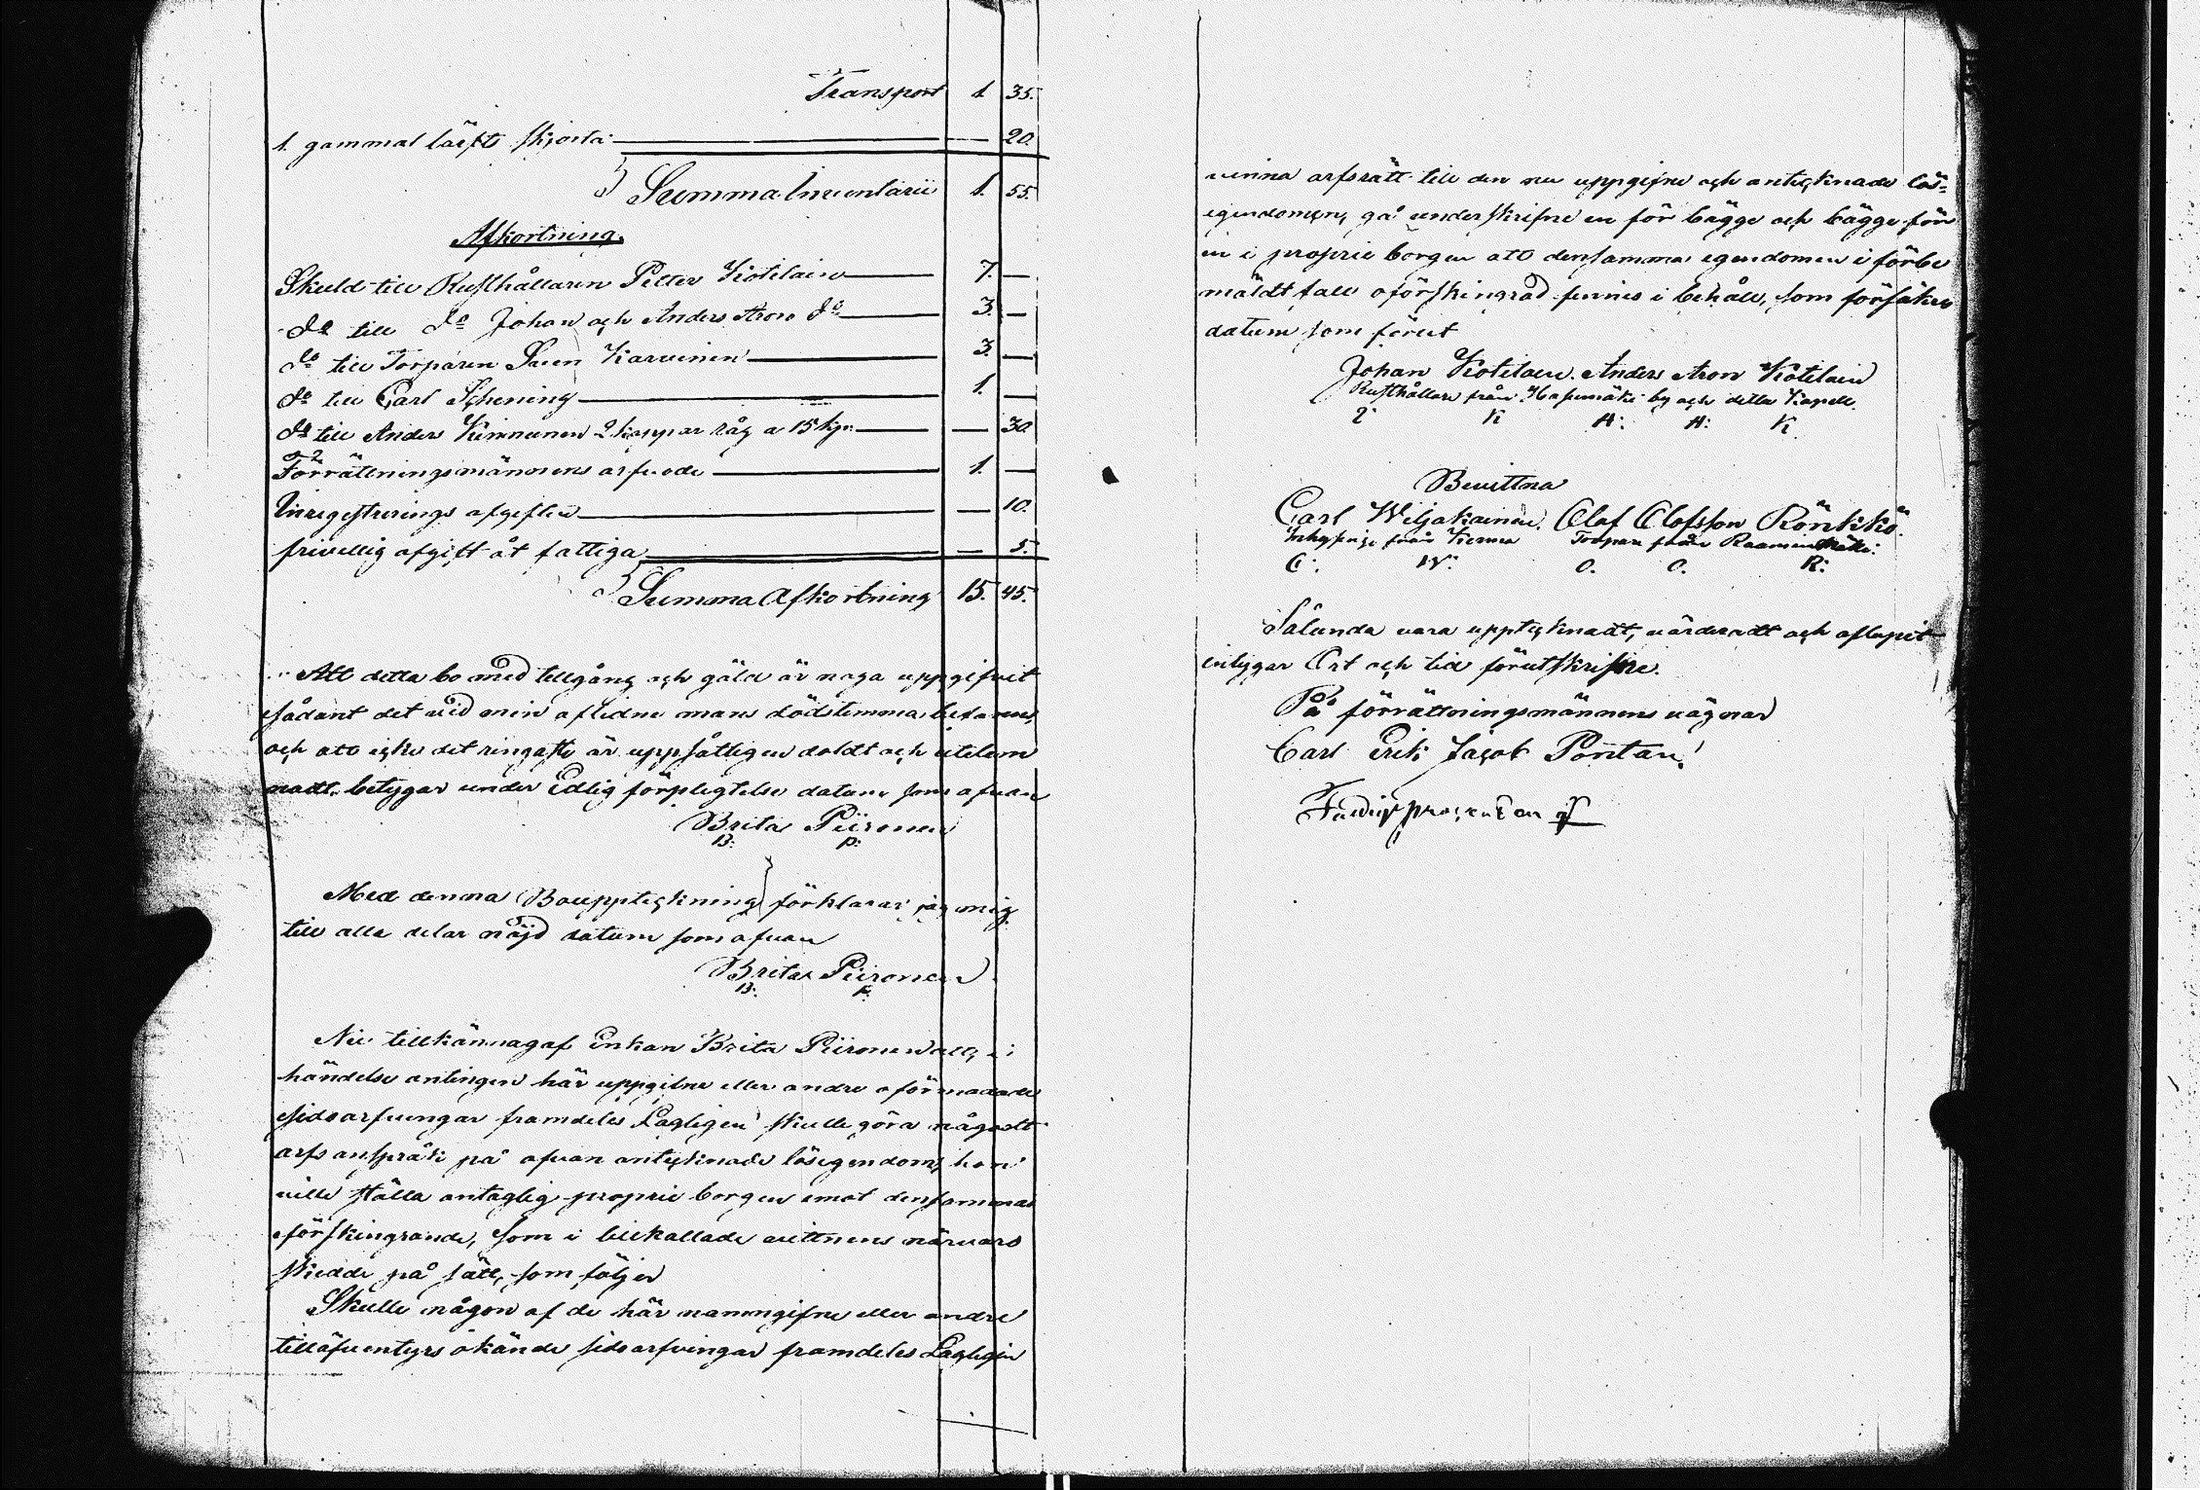 Transport 1 35.
1. gammal lärfts skjorta 20.
Summa Inventarii 1. 55.
Afkortning.
Skuld till Rusthållaren Petter Kotilain 7. —
do till do Johan och Anders Aron do 3. —
do till Torparen Sven Karvinen 3. —
do till Carl Schening 1. —
do till Anders Kinnunen 2 kappar råg a 15 kp: — 30.
Förrättningsmännens arfvode 1. —
Inregistrerings afgiften — 10.
frivillig afgift åt fattiga — 5.
Summa Afkortning 15. 45.
Att detta bo med tillgång och gäld är noga uppgifvit
sådant det vid min aflidne mans dödstimma befanns,
och att icke det ringaste är uppsåtligen doldt och utelem
nadt, betygar under Edlig förpligtelse datum som ofvan
Brita Piironen
B: P:
Med denna Bouppteckning förklarar jag mig
till alla delar nöjd datum som ofvan
Brita Piironen
B: P:
Nu tillkännagaf Enkan Brita Piironen att, i
händelse antingen här uppgifne eller andre oförmodade
sidoarfvingar framdeles Lagligen skulle göra någodt
arfs anspråk på ofvan antecknade lösegendom, hon
ville ställa antaglig proprie borgen emot densammas
förskingrande, som i tillkallade vittnens närvaro
skedde på sätt, som följer
Skulle någon af de här namngifne eller andre
tilläfventyrs okände sidoarfvingar framdeles Lagligen
vinna arfsrätt till den nu uppgifne och antecknade lös-
egendomen, gå underskrifne en för bägge och bägge för
en i proprie borgen att densamma egendomen i förbe
mäldt fall oförskingrad finnes i behåll, som försäkras
datum som förut
Johan Kotilain. Anders Aron Kotilain
Rusthållare från Hapumäki by och detta Kapell.
I: K A: A: K
Bevittna
Carl Wiljakainen. Olof Olofsson Rönkkö.
Inhysing från Torpare från Raaminmäki:
C: W: O. O. R:
Sålunda vara upptecknadt, värderadt och aflupit
intygar Ort och tid förutskrifne.
På förrättningsmännens vägnar
Carl Erik Jacob Pontan!